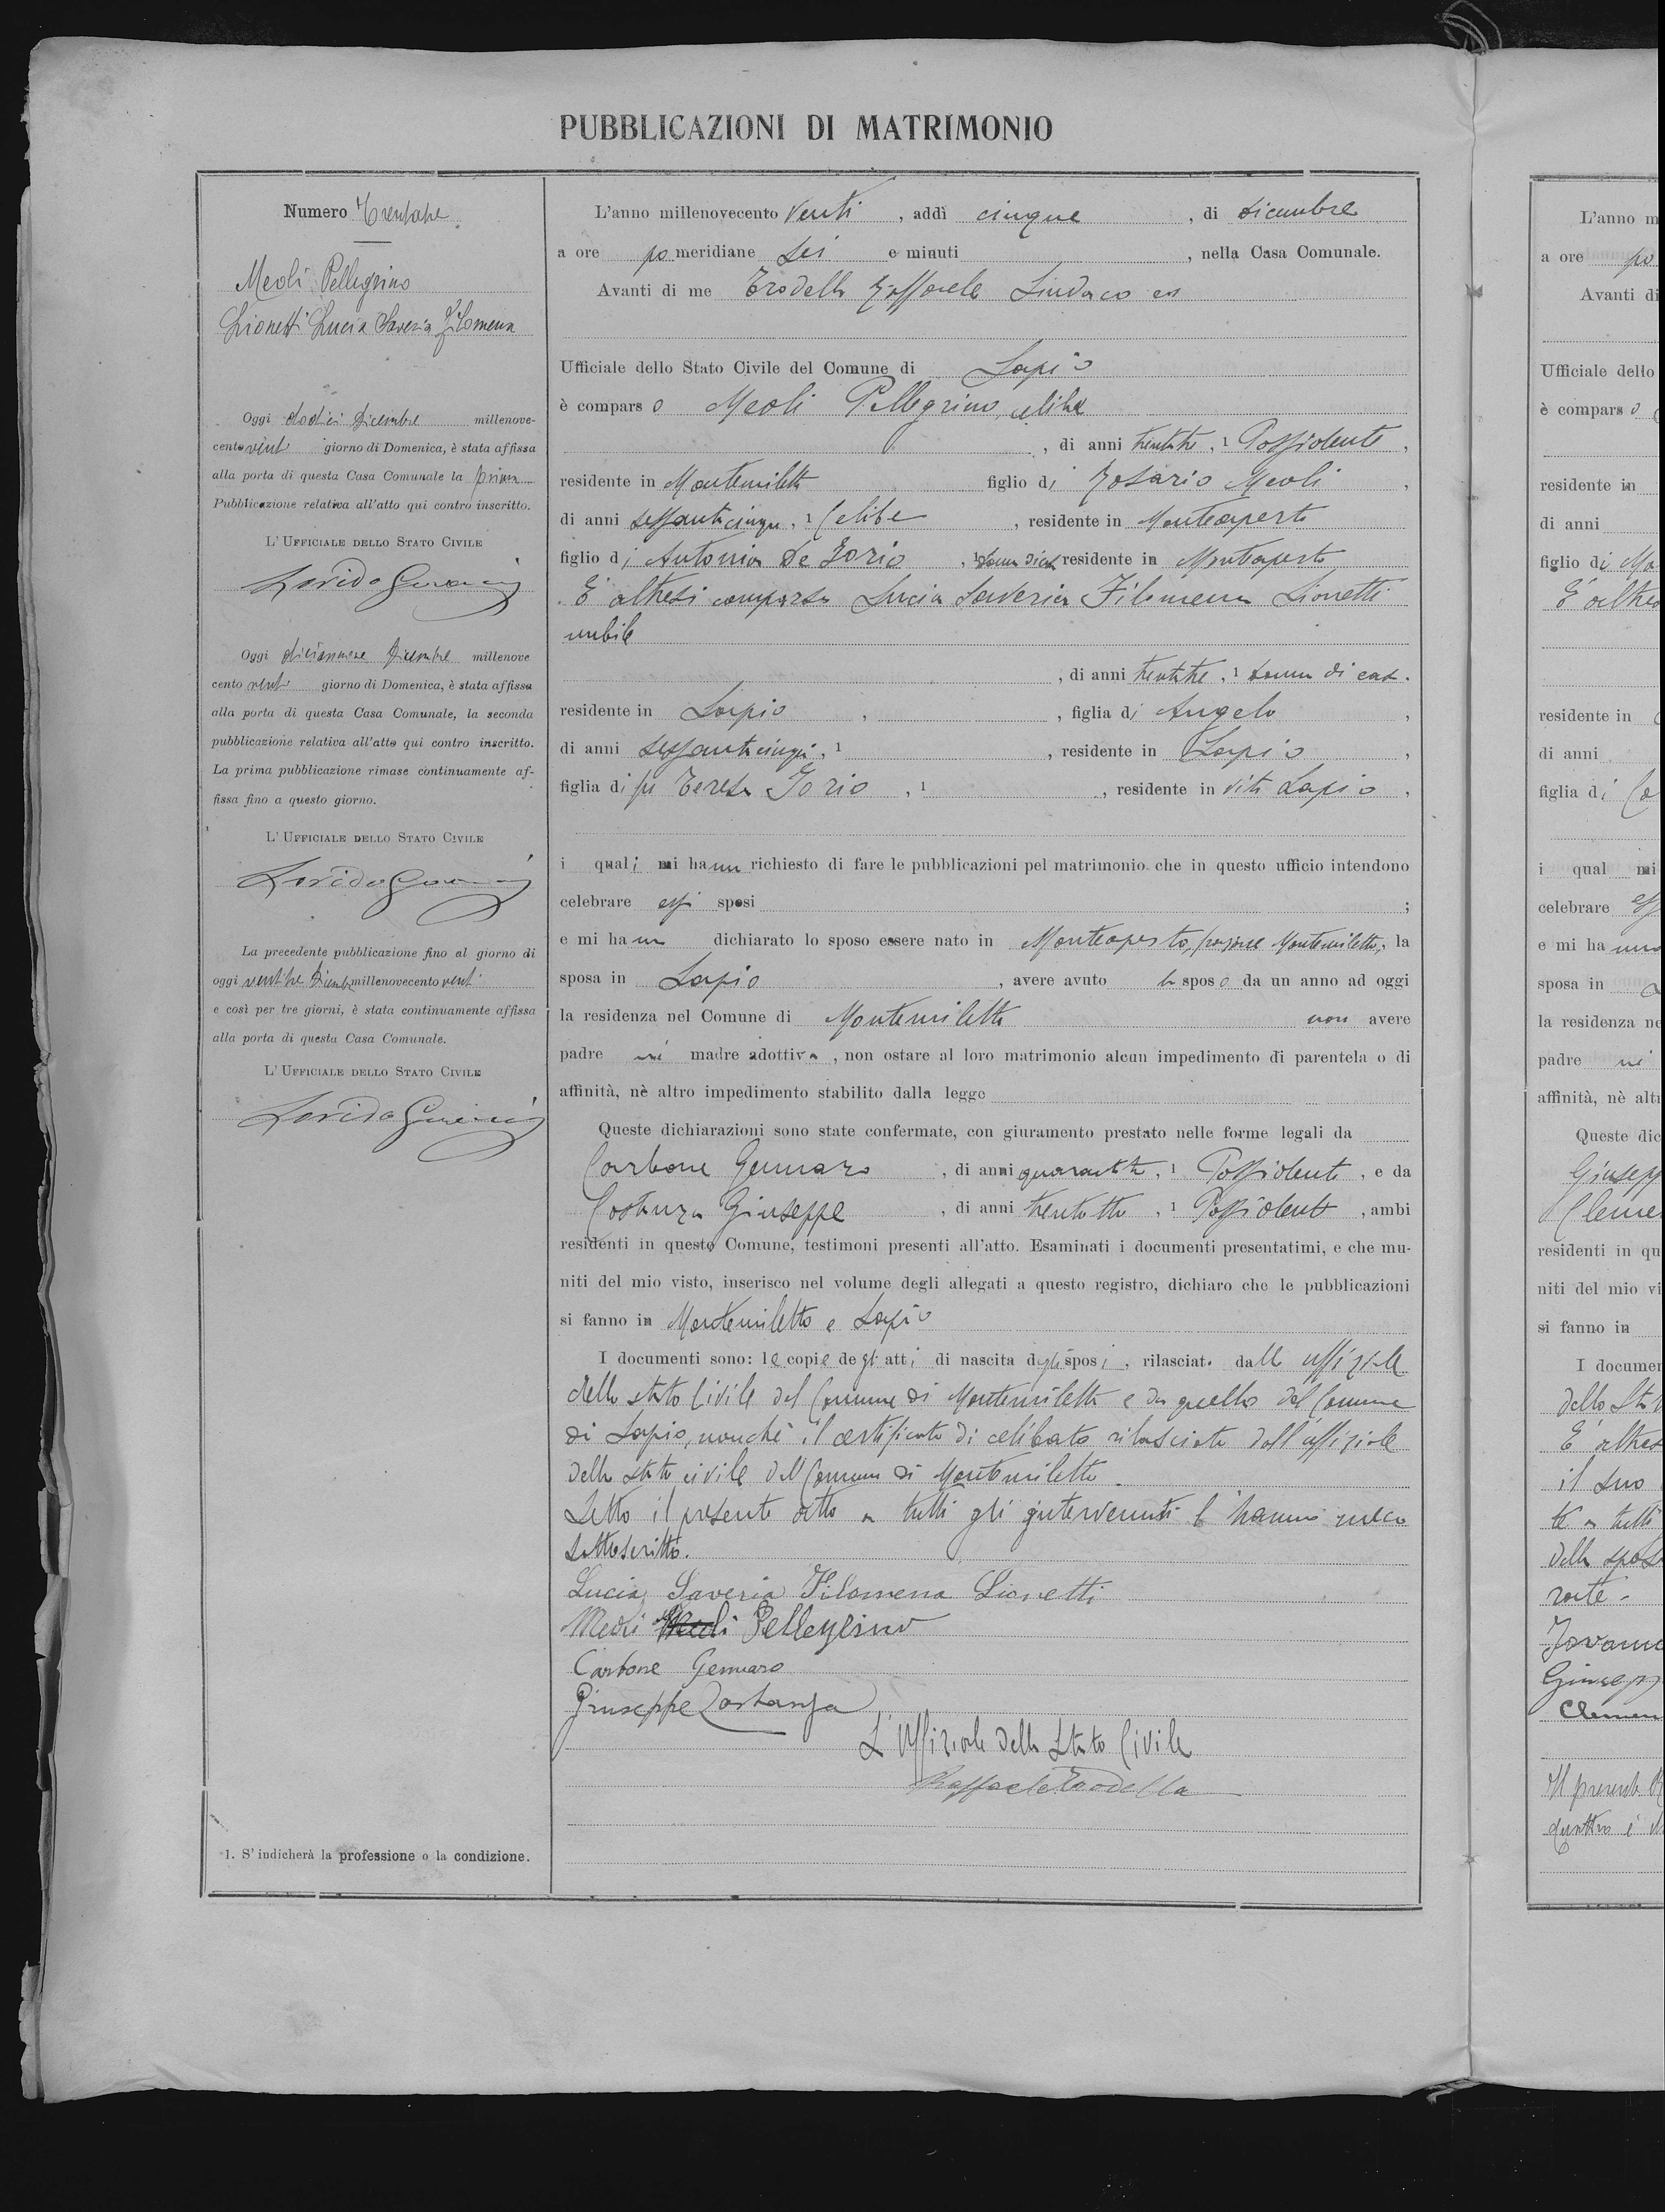 PUBBLICAZIONI DI MATRIMONIO
Numero Trentatre
Meoli Pellegrino
Lionetti Lucia Saveria Filomena
Oggi dodici Dicembre millenove-
cento venti giorno di Domenica, è stata affissa
alla porta di questa Casa Comunale la prima
Pubblicazione relativa all'atto qui contro inscritto.
L'UFFICIALE DELLO STATO CIVILE
Oggi diciannove Dicembre millenove
cento venti giorno di Domenica, è stata affissa
alla porta di questa Casa Comunale, la seconda
pubblicazione relativa all'atto qui contro inscritto.
La prima pubblicazione rimase continuamente af-
fissa fino a questo giorno.
L'UFFICIALE DELLO STATO CIVILE
La precedente pubblicazione fino al giorno di
oggi ventitre Dicembre millenovecento venti
e così per tre giorni, è stata continuamente affissa
alla porta di questa Casa Comunale.
L'UFFICIALE DELLO STATO CIVILE
1. S'indicherà la professione o la condizione.
L'anno millenovecento Venti, addì cinque, di dicembre
a ore pomeridiane Sei e minuti , nella Casa Comunale.
Avanti di me Trodella Raffaele Sindaco ed
Ufficiale dello Stato Civile del Comune di Lapio
è comparso Meoli Pellegrino, celibe
, di anni trentatre, 1 Possidente,
residente in Montemiletto figlio di Rosario Meoli,
di anni sessantacinque, 1 Celibe, residente in Monteaperto
figlio di Antonia De Iorio, 1 donna di casa residente in Monteaperto
E' altresi comparsa Lucia Saveria Filomena Lionetti
nubile
, di anni trentatre, 1 donna di casa.
residente in Lapio, , figlia di Angelo,
di anni sessantacinque, 1 , residente in Lapio,
figlia di fu Teresa Iorio, 1 , residente in vita Lapio,
i quali mi hanno richiesto di fare le pubblicazioni pel matrimonio che in questo ufficio intendono
celebrare essi sposi ;
e mi hanno dichiarato lo sposo essere nato in Monteaperto, frazione Montemiletto, la
sposa in Lapio, avere avuto lo sposo da un anno ad oggi
la residenza nel Comune di Montemiletto non avere
padre nè madre adottiva, non ostare al loro matrimonio alcun impedimento di parentela o di
affinità, nè altro impedimento stabilito dalla legge
Queste dichiarazioni sono state confermate, con giuramento prestato nelle forme legali da
Carbone Gennaro, di anni, 1 Possidente, e da
Costanza Giuseppe, di anni trentotto, 1 Possidente, ambi
residenti in questo Comune, testimoni presenti all'atto. Esaminati i documenti presentatimi, e che mu-
niti del mio visto, inserisco nel volume degli allegati a questo registro, dichiaro che le pubblicazioni
si fanno in Montemiletto e Lapio
I documenti sono: le copie degli atti di nascita degli sposi, rilasciate dall uffiziale
dello stato Civile del Comune di Montemiletto e da quello del Comune
di Lapio, nonchè il certificato di celibato rilasciato dall'uffiziale
dello stato civile del Comune di Montemiletto.
Letto il presente atto a tutti gli intervenuti l'hanno meco
sottoscritto.
Lucia Saveria Filomena Lionetti
Meoli Meoli Pellegrino
Carbone Gennaro
Giuseppe Costanza
L'Uffiziale dello Stato Civile
Raffaele Trodella
L'anno m
a ore po
Avanti di
Ufficiale dello
è comparso
residente in
di anni
figlio di Ma
E' altres
residente in
di anni
figlia di
i qual mi
celebrare
e mi hanno
sposa in
la residenza ne
padre nè
affinità, nè alt
Queste dic
Giusepp
Cleme
residenti in qu
niti del mio vi
si fanno in
I documen
dello Sta
E' altres
il suo
te a tutti
della spos
Giusepp
Clemen
Il presente
quattro è